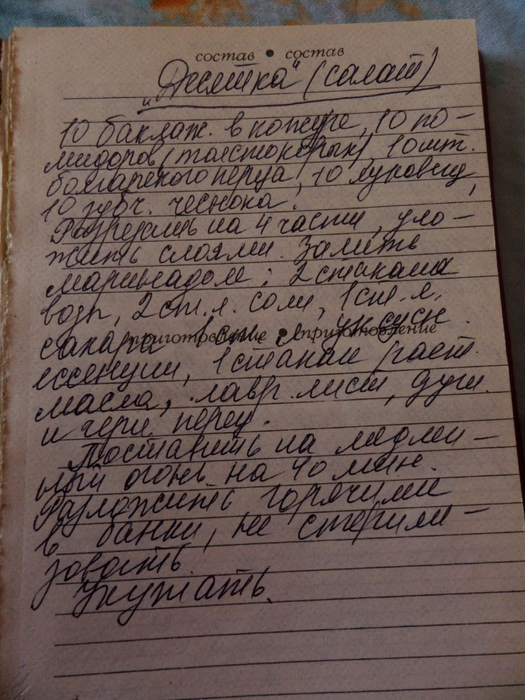 состав • состав
„Десятка" (салат)
10 баклаж. в кожуре, 10 по-
мидоров (толстокорых), 10 шт.
болгарского перца, 10 луковиц,
10 зубч. чеснока.
Разрезать на 4 части, уло-
жить слоями. Залить
маринадом: 2 стакана
воды, 2 ст. л. соли, 1 ст. л.
приготовление • приготовление
сахара, 1 ст. л. уксусн.
ессенции, 1 стакан раст.
масла, лавр. лист, душ.
и черн. перец.
Поставить на медлен-
ный огонь на 40 мин.
Разложить горячими
в банки, не стерили-
зовать.
Укутать.